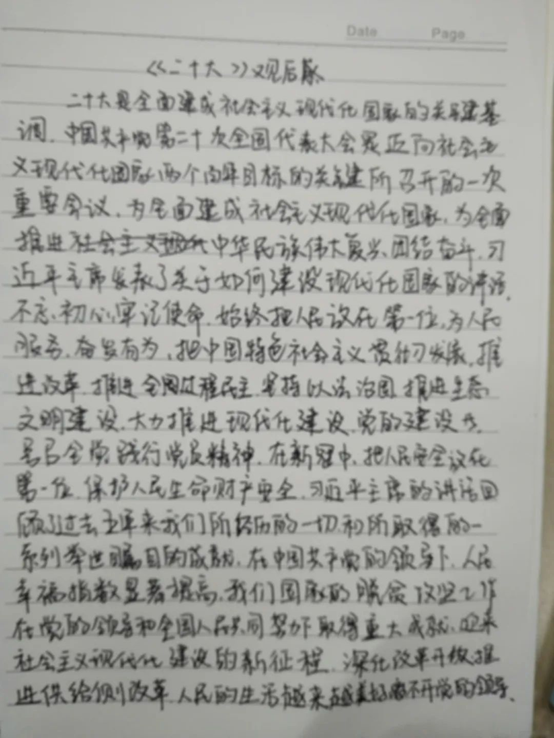 Date Page
《二十大》观后感
二十大是全面建成社会主义现代化国家的关键基
调.中国共产党第二十次全国代表大会是迈向社会主
义现代化国家两个百年目标的关键所召开的一次
重要会议,为全面建成社会主义现代化国家,为全面
推进社会主义现代中华民族伟大复兴团结奋斗.习
近平主席发表了关于如何建设现代化国家的讲话,
不忘初心,牢记使命,始终把人民放在第一位,为人民
服务,奋发有为,把中国特色社会主义贯彻发展,推
进改革,推进全过程民主,坚持以法治国,推进生态
文明建设,大力推进现代化建设,党的建设
号召全党践行党员精神,在新冠中,把人民安全放在
第一位,保护人民生命财产安全,习近平主席的讲话回
顾了过去五年来我们所经历的一切和所取得的一
系列举世瞩目的成就,在中国共产党的领导下,人民
幸福指数显著提高,我们国家的脱贫攻坚工作
在党的领导和全国人民共同努力下取得重大成就,迎来
社会主义现代化建设的新征程,深化改革开放,推
进供给侧改革,人民的生活越来越美好离不开党的领导.